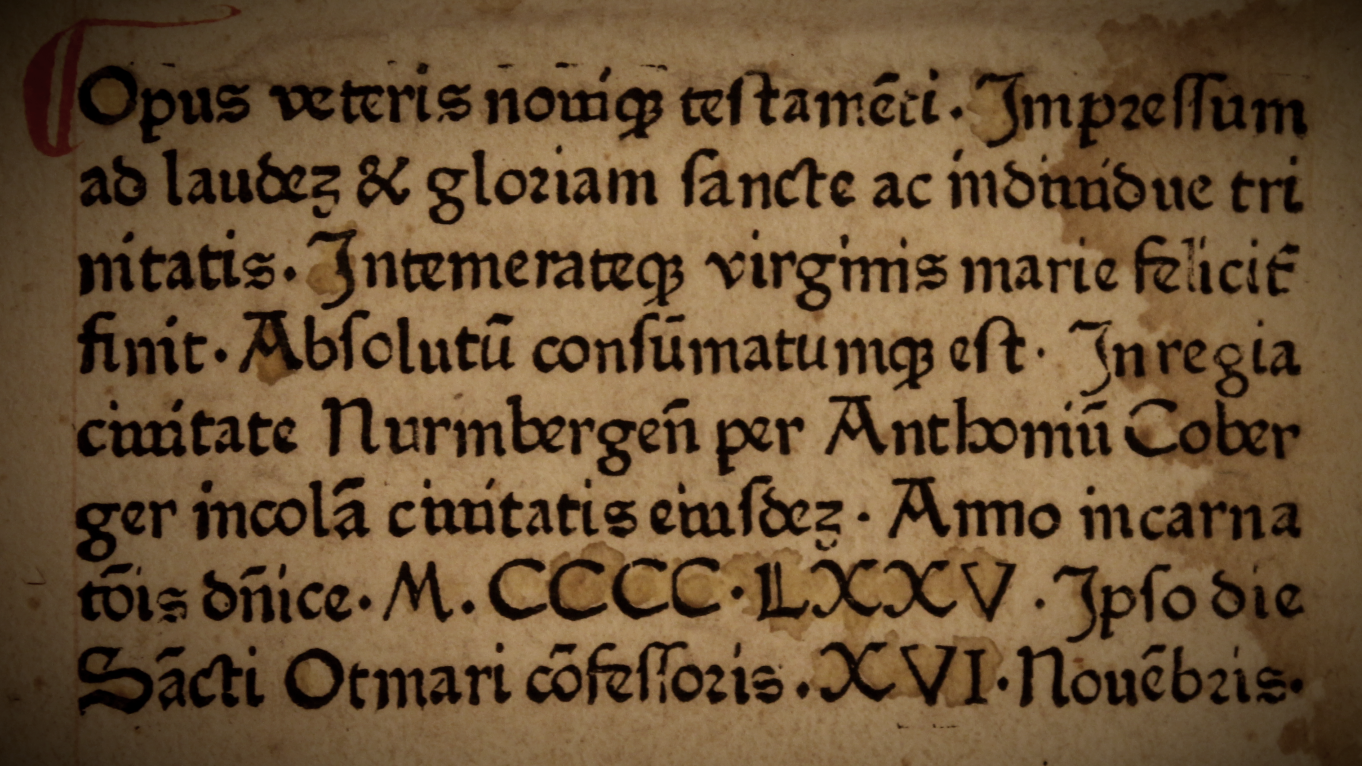 Opus veteris nouiqꝫ teſtamēti. Impꝛeſſum
ad laudeꝫ & gloꝛiam ſancte ac indiuidue tri
nitatis. Intemerateqꝫ virginis marie feliciť
finit. Abſolutū conſūmatumqꝫ eſt. In regia
ciuitate Nurmbergeñ per Anthoniū Cober
ger incolā ciuitatis eiuſdeꝫ. Anno incarna
tōis dñice. M. CCCC. LXXV. Ipſo die
Sācti Otmari cōfeſſoꝛis. XVI. Nouēbꝛis.